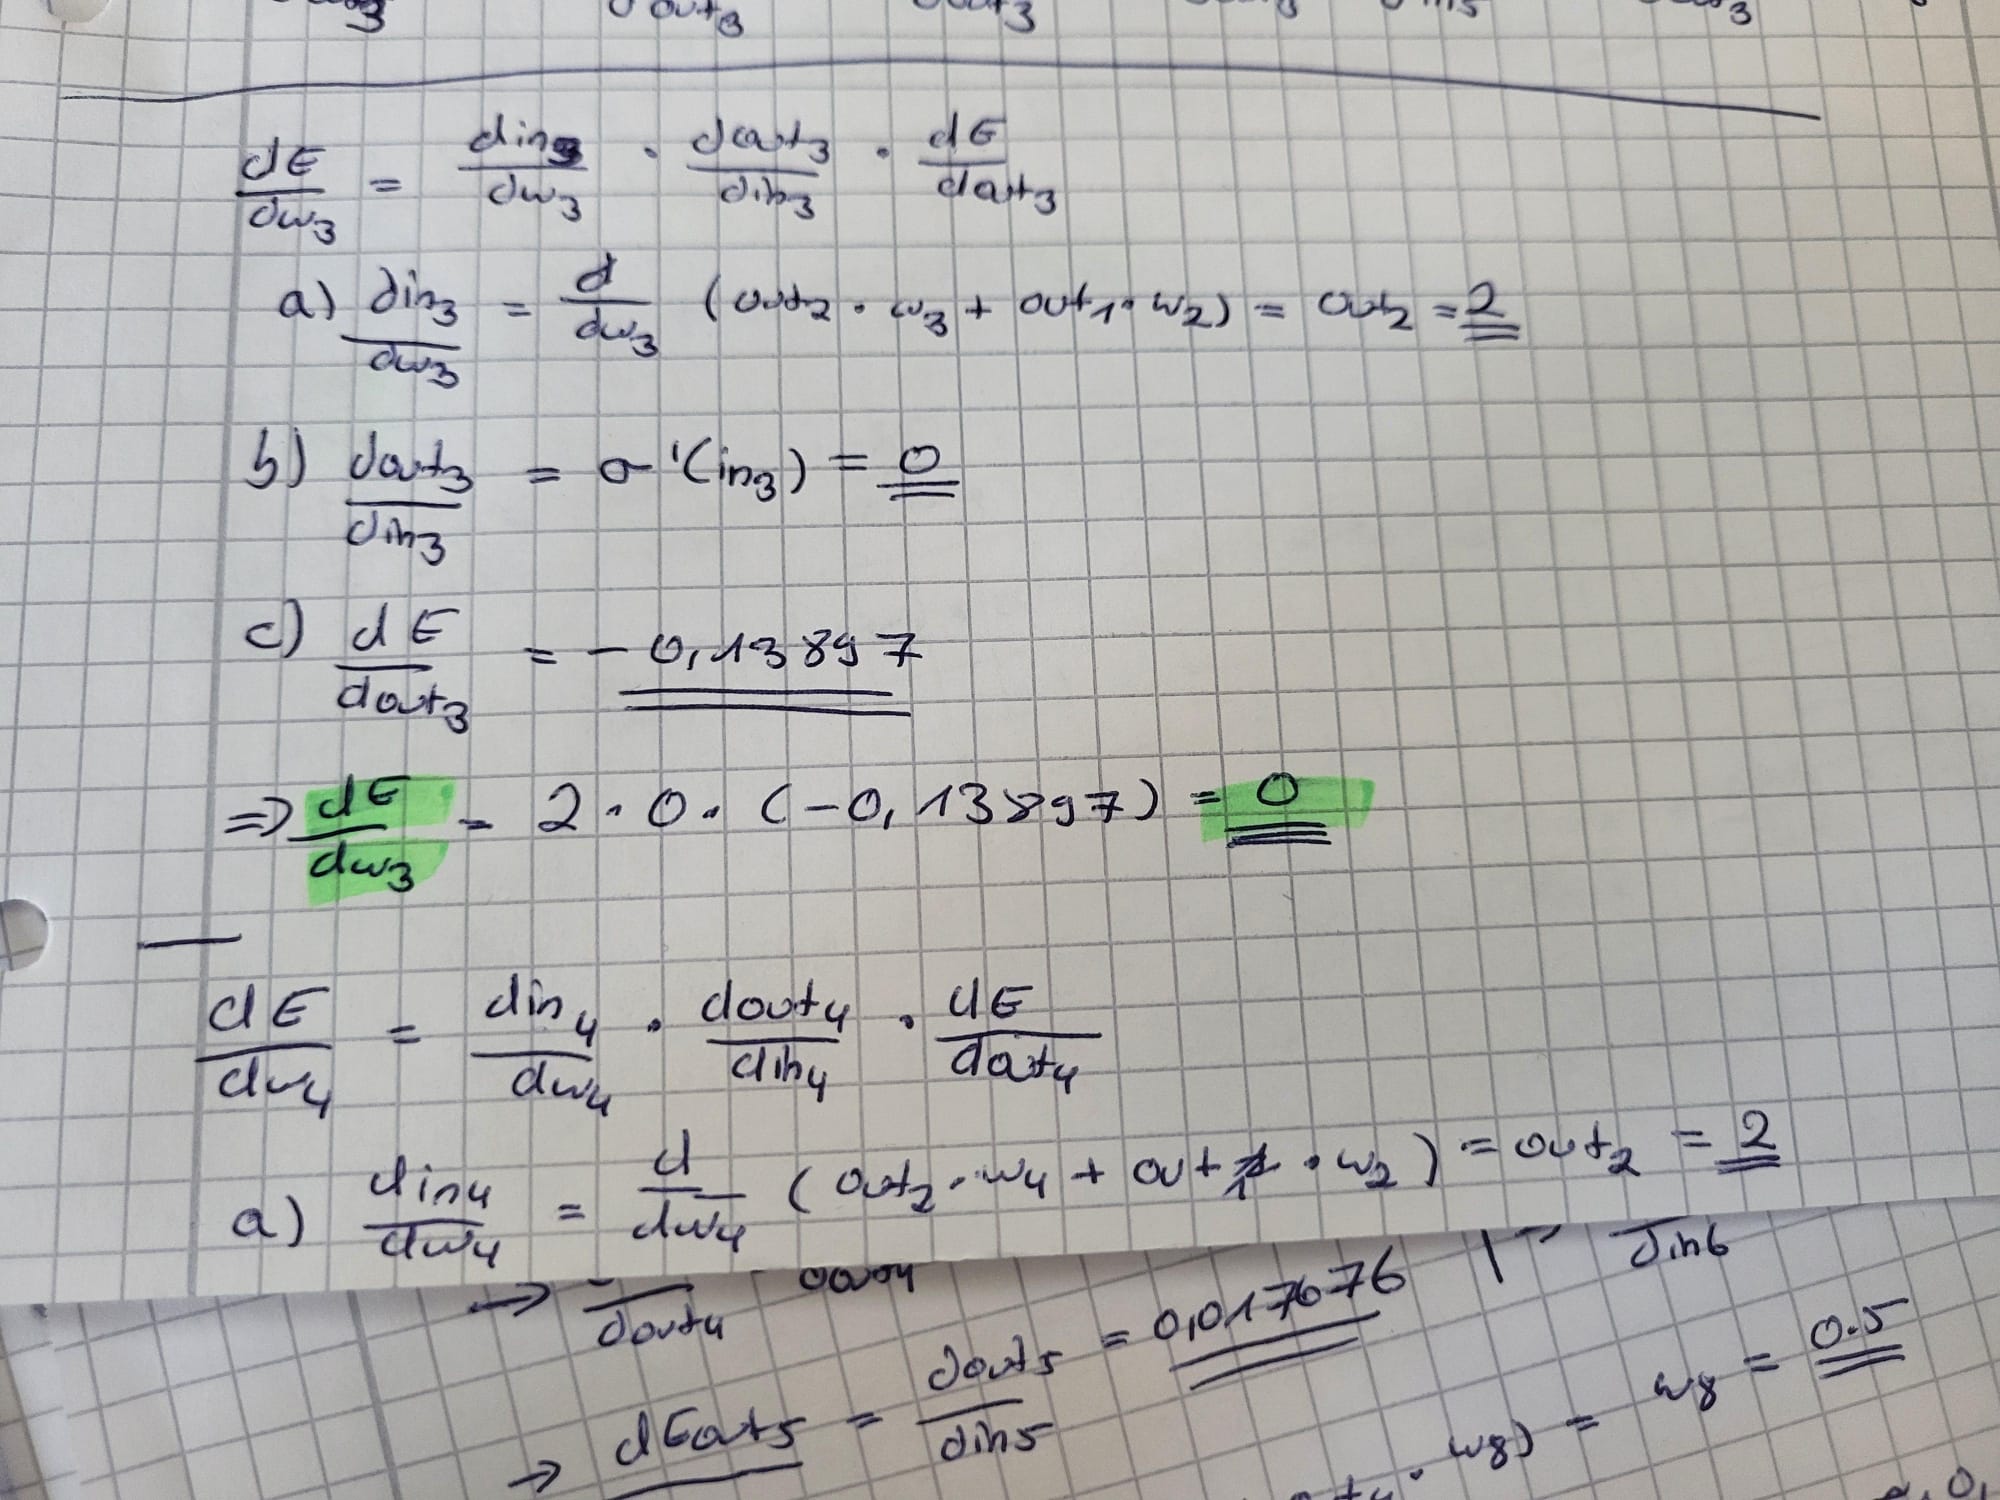 dE/dw3 = din3/dw3 · dout3/din3 · dE/dout3
a) din3/dw3 = d/dw3 (out2 · w3 + out1 · w2) = out2 = 2
b) dout3/din3 = σ'(in3) = 0
c) dE/dout3 = -0,13897
=> dE/dw3 = 2 · 0 · (-0,13897) = 0
dE/dw4 = din4/dw4 · dout4/din4 · dE/dout4
a) din4/dw4 = d/dw4 (out2 · w4 + out1 · w2) = out2 = 2
→ dout4
din6
→ dEout5 = dout5/din5 = 0,017676
w8) = w8 = 0.5